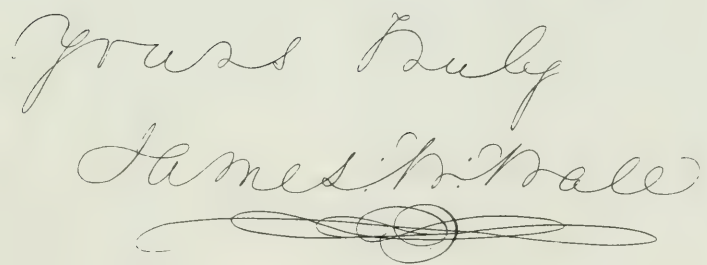 Yours Truly
James. W. Wall